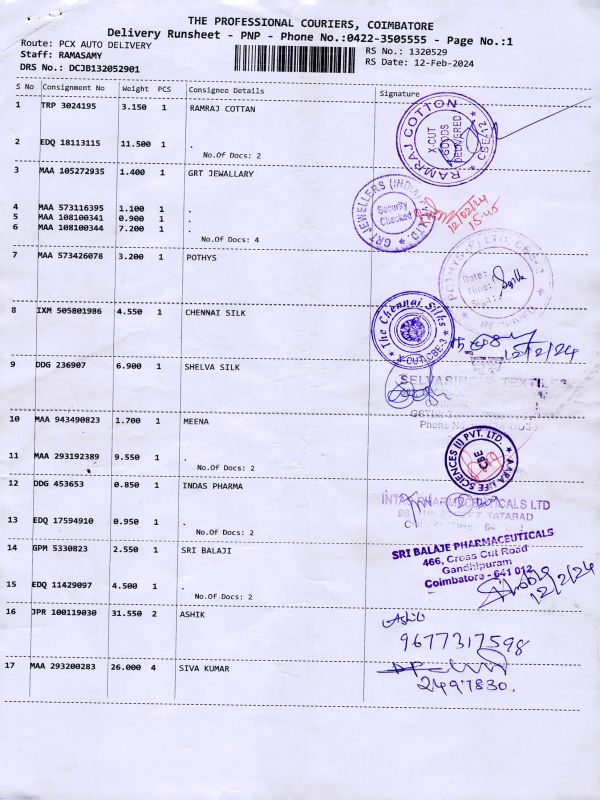 THE PROFESSIONAL COURIERS, COIMBATORE
Delivery Runsheet - PNP - Phone No.:0422-3505555 - Page No.:1
Route: PCX AUTO DELIVERY
RS No.: 1320529
Staff: RAMASAMY
RS Date: 12-Feb-2024
DRS No.: DCJB132052901
S No Consignment No Weight PCS Consignee Details Signature
1 TRP 3024195 3.150 1 RAMRAJ COTTAN
RAMRAJ COTTON
X-CUT
GOODS
DELIVERED
CBE-12
2 EDQ 18113115 11.500 1 .
No.Of Docs: 2
3 MAA 105272935 1.400 1 GRT JEWALLARY
GRT JEWELLERS (INDIA)
Security
Checked
12/02/24
15:45
4 MAA 573116395 1.100 1 .
5 MAA 108100341 0.900 1 .
6 MAA 108100344 7.200 1 .
No.Of Docs: 4
7 MAA 573426078 3.200 1 POTHYS
Date:
Time:
8 IXM 505801986 4.550 1 CHENNAI SILK
The Chennai Silks
12/2/24
9 DDG 236907 6.900 1 SHELVA SILK
10 MAA 943490823 1.700 1 MEENA
AARA LIFE SCIENCES (I) PVT. LTD.
CBE
11 MAA 293192389 9.550 1 .
No.Of Docs: 2
12 DDG 453653 0.850 1 INDAS PHARMA
13 EDQ 17594910 0.950 1 .
No.Of Docs: 2
14 GPM 5330823 2.550 1 SRI BALAJI
SRI BALAJE PHARMACEUTICALS
466, Cross Cut Road
Gandhipuram
Coimbatore - 641 012
12/2/24
15 EDQ 11429097 4.500 1 .
No.Of Docs: 2
16 JPR 100119030 31.550 2 ASHIK
9677317598
17 MAA 293200283 26.000 4 SIVA KUMAR
2497830.